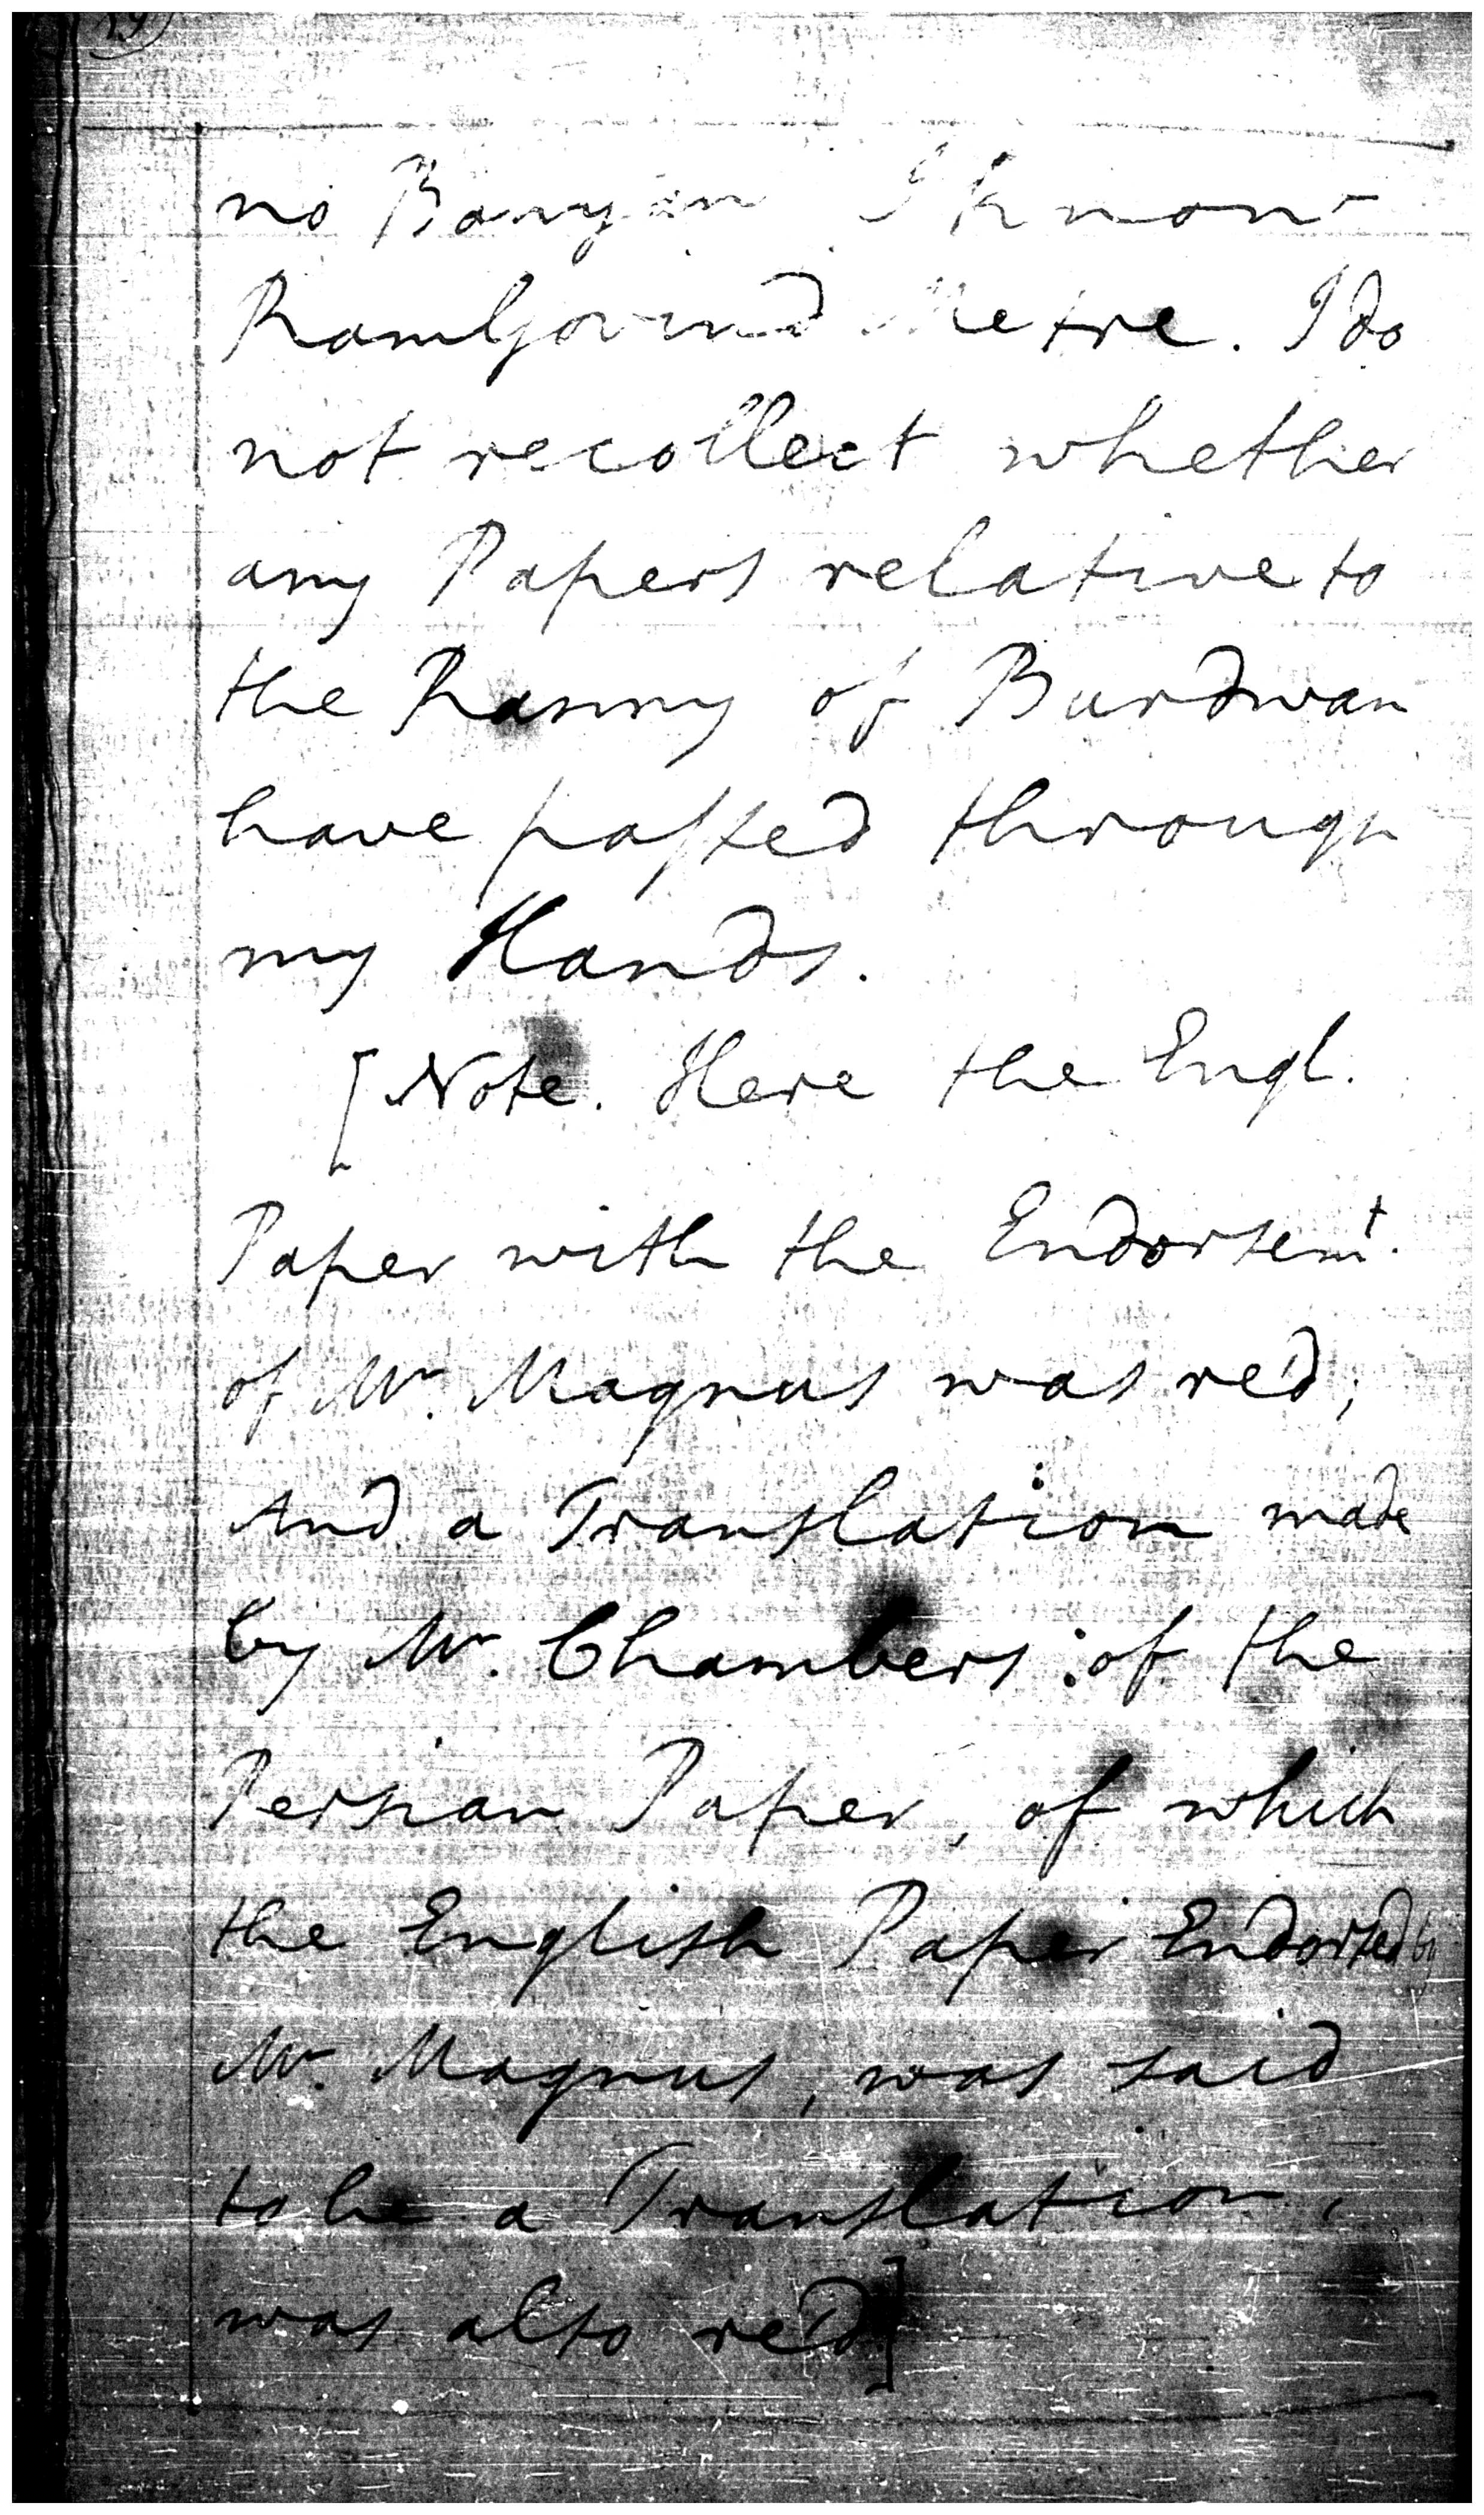 no Banyan I know
RamGovind Metre. I do
not recollect whether
any Papers relative to
the Ranny of Burdwan
have passed through
my Hands.
[Note. Here the Engl.
Paper with the Endorsemt.
of Mr. Magnus was red;
And a Translation made
by Mr. Chambers: of the
Persian Paper, of which
the English Paper Endorsed by
Mr. Magnus, was said
to be a Translation,
was also red]